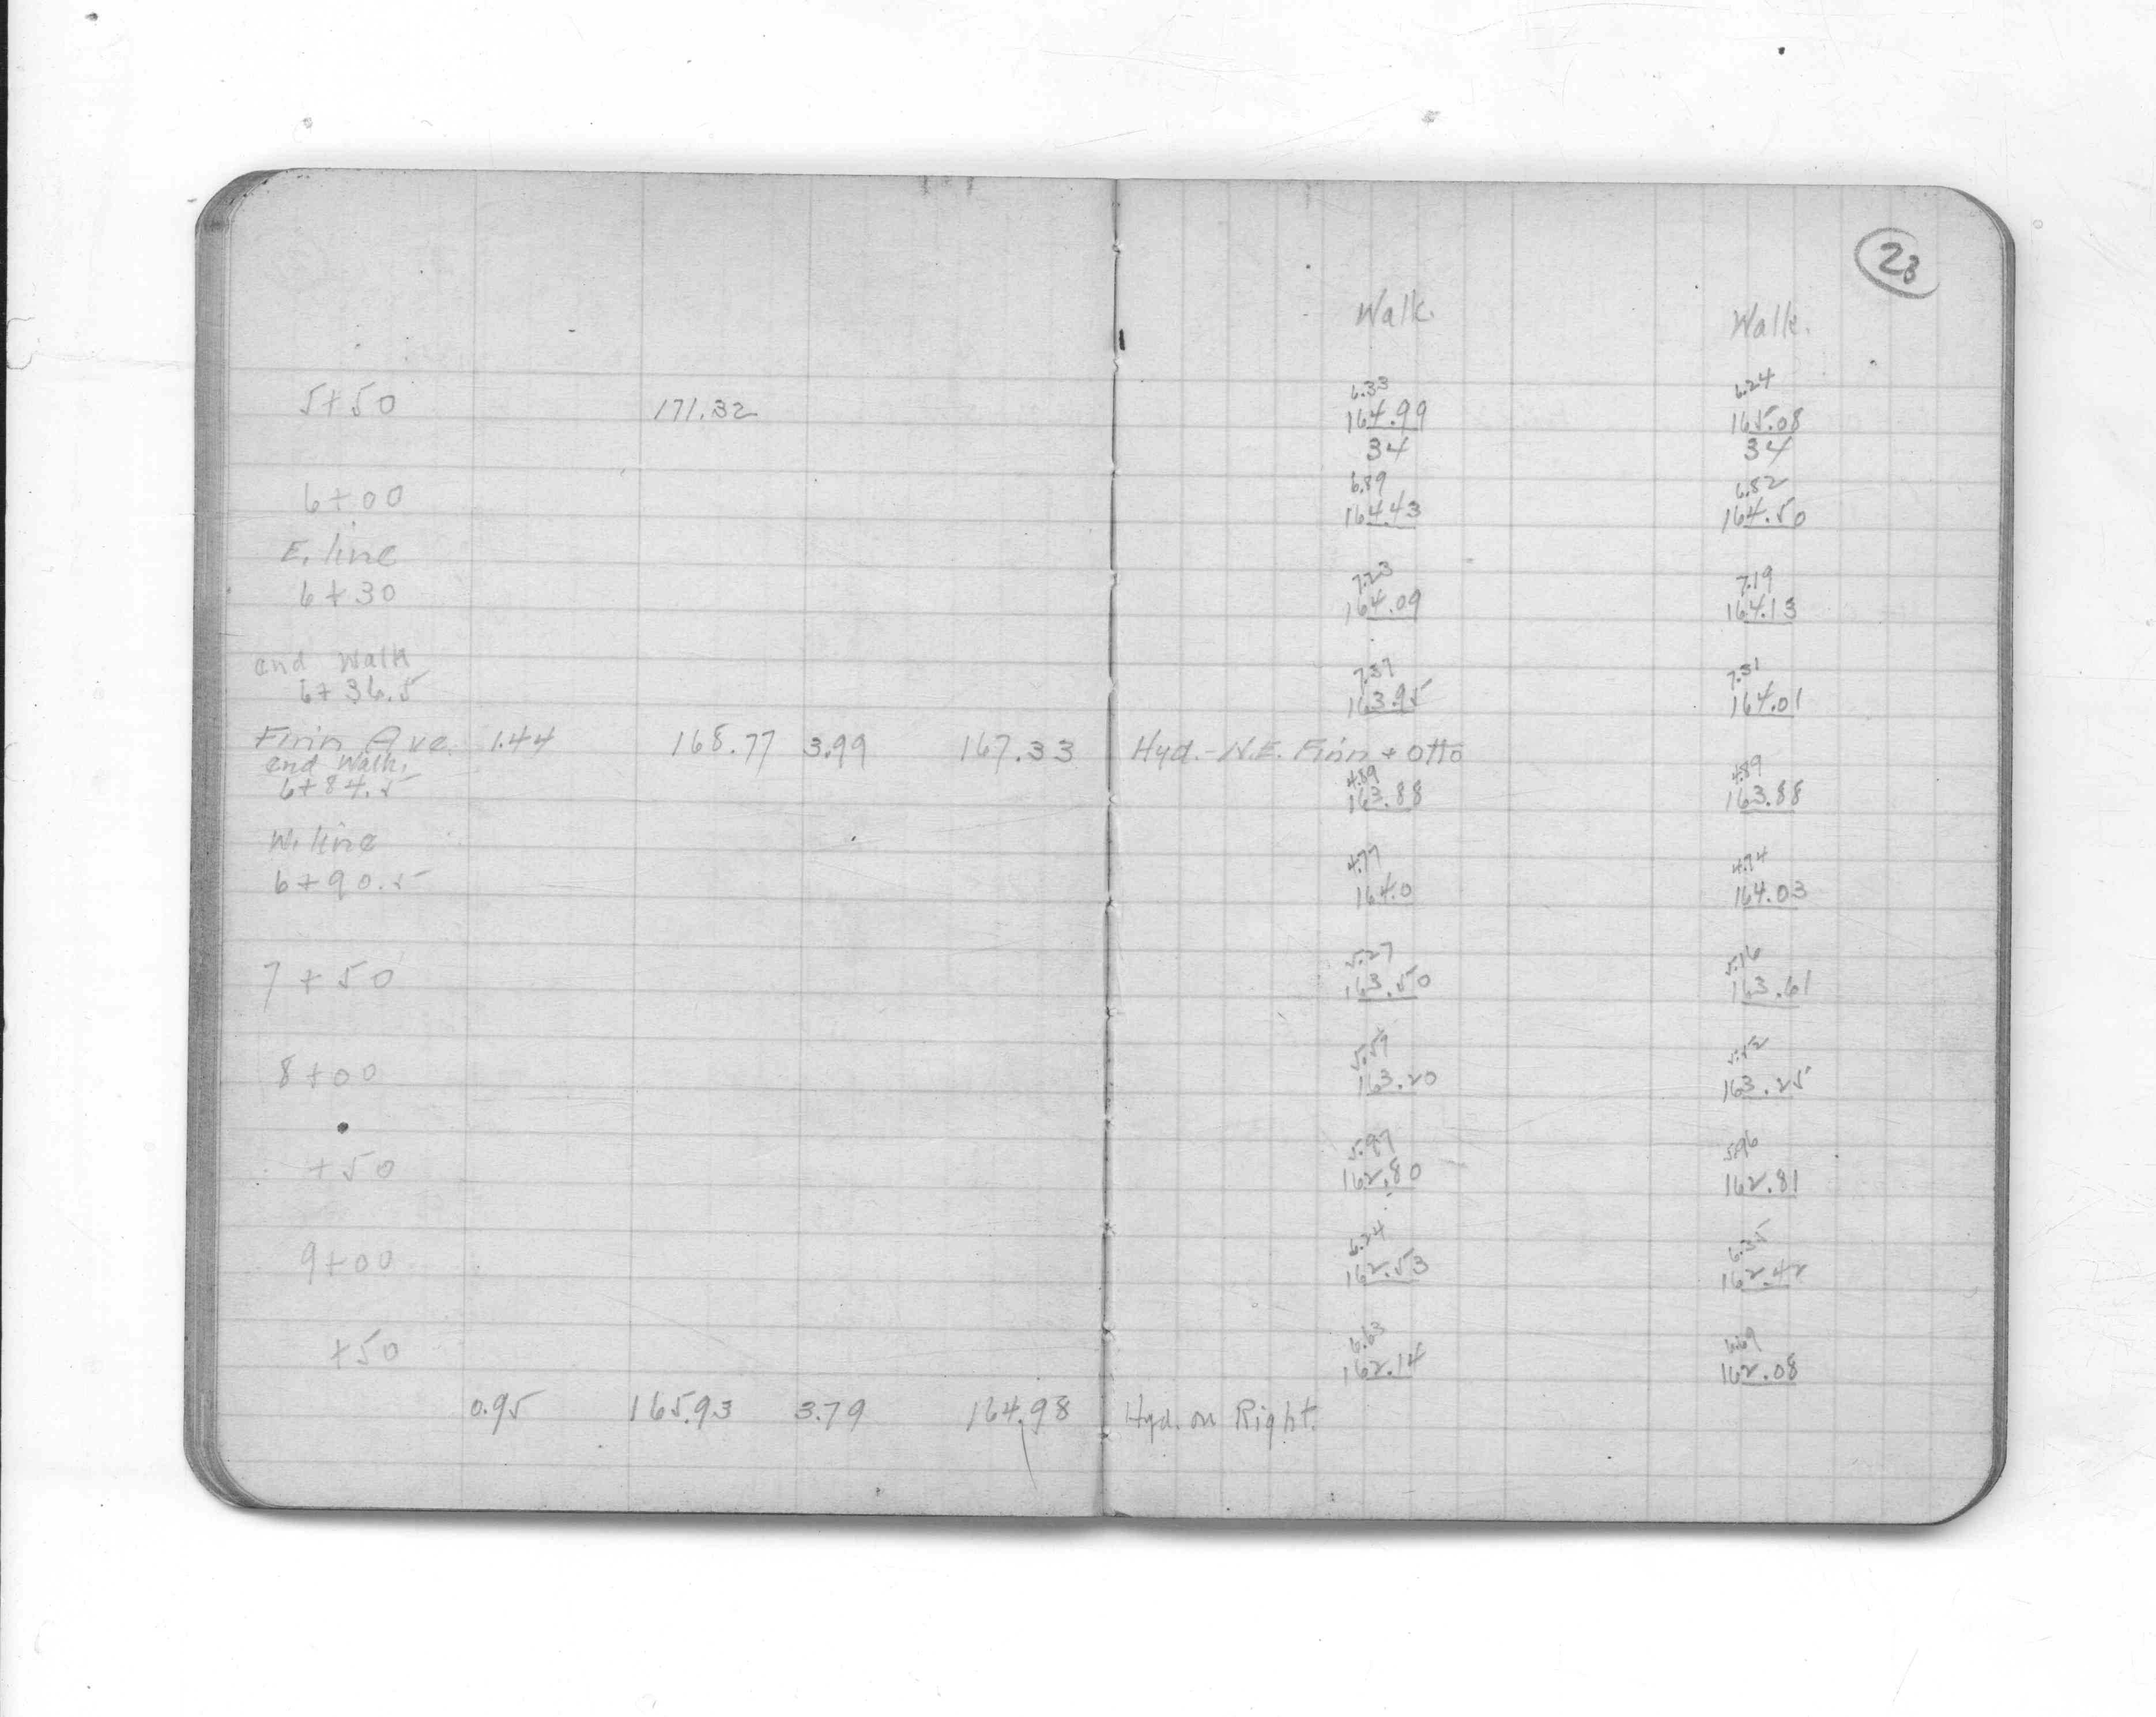 23
Walk. Walk.
6.33 6.24
5+50 171.32 164.99 165.08
34 34
6.89 6.82
6+00 164.43 164.50
E. line
7.23 7.19
6+30 164.09 164.13
end Walk 7.37 7.31
6+36.5 163.95 164.01
Finn Ave. 1.44 168.77 3.99 167.33 Hyd.- N.E. Finn + Otto
end Walk. 4.89 4.89
6+84.5 163.88 163.88
W. line 4.77 4.74
6+90.5 164.0 164.03
5.27 5.16
7+50 163.50 163.61
5.57 5.52
8+00 163.20 163.25
5.97 5.96
+50 162.80 162.81
6.24 6.35
9+00 162.53 162.42
6.63 6.69
+50 162.14 162.08
0.95 165.93 3.79 164.98 Hyd. on Right.